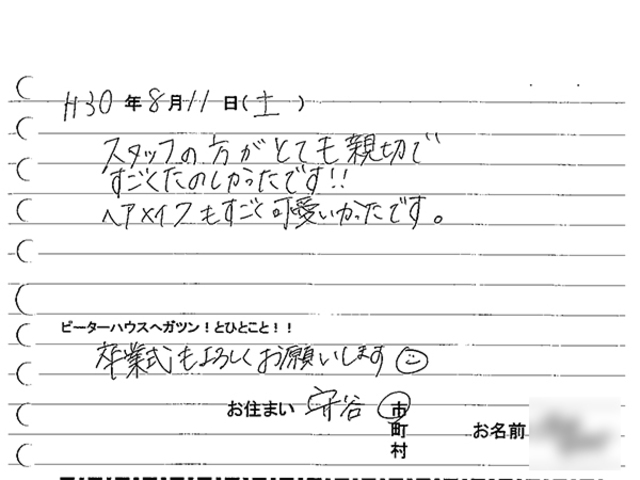 H30年8月11日(土)
スタッフの方がとても親切で
すごくたのしかったです!!
ヘアメイクもすごく可愛いかったです。
ピーターハウスへガツン！とひとこと！！
卒業式もよろしくお願いします
お住まい 守谷 市
町
村
お名前